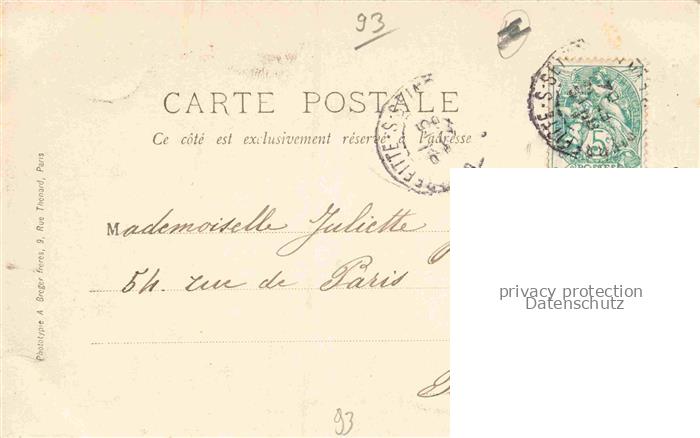 93
CARTE POSTALE
Ce côté est exclusivement réservé à l'adresse
Mademoiselle Juliette
54. rue de Paris
privacy protection
Datenschutz
93
Phototypie A Breger frères, 9, Rue Thénard, Paris
5
POSTES